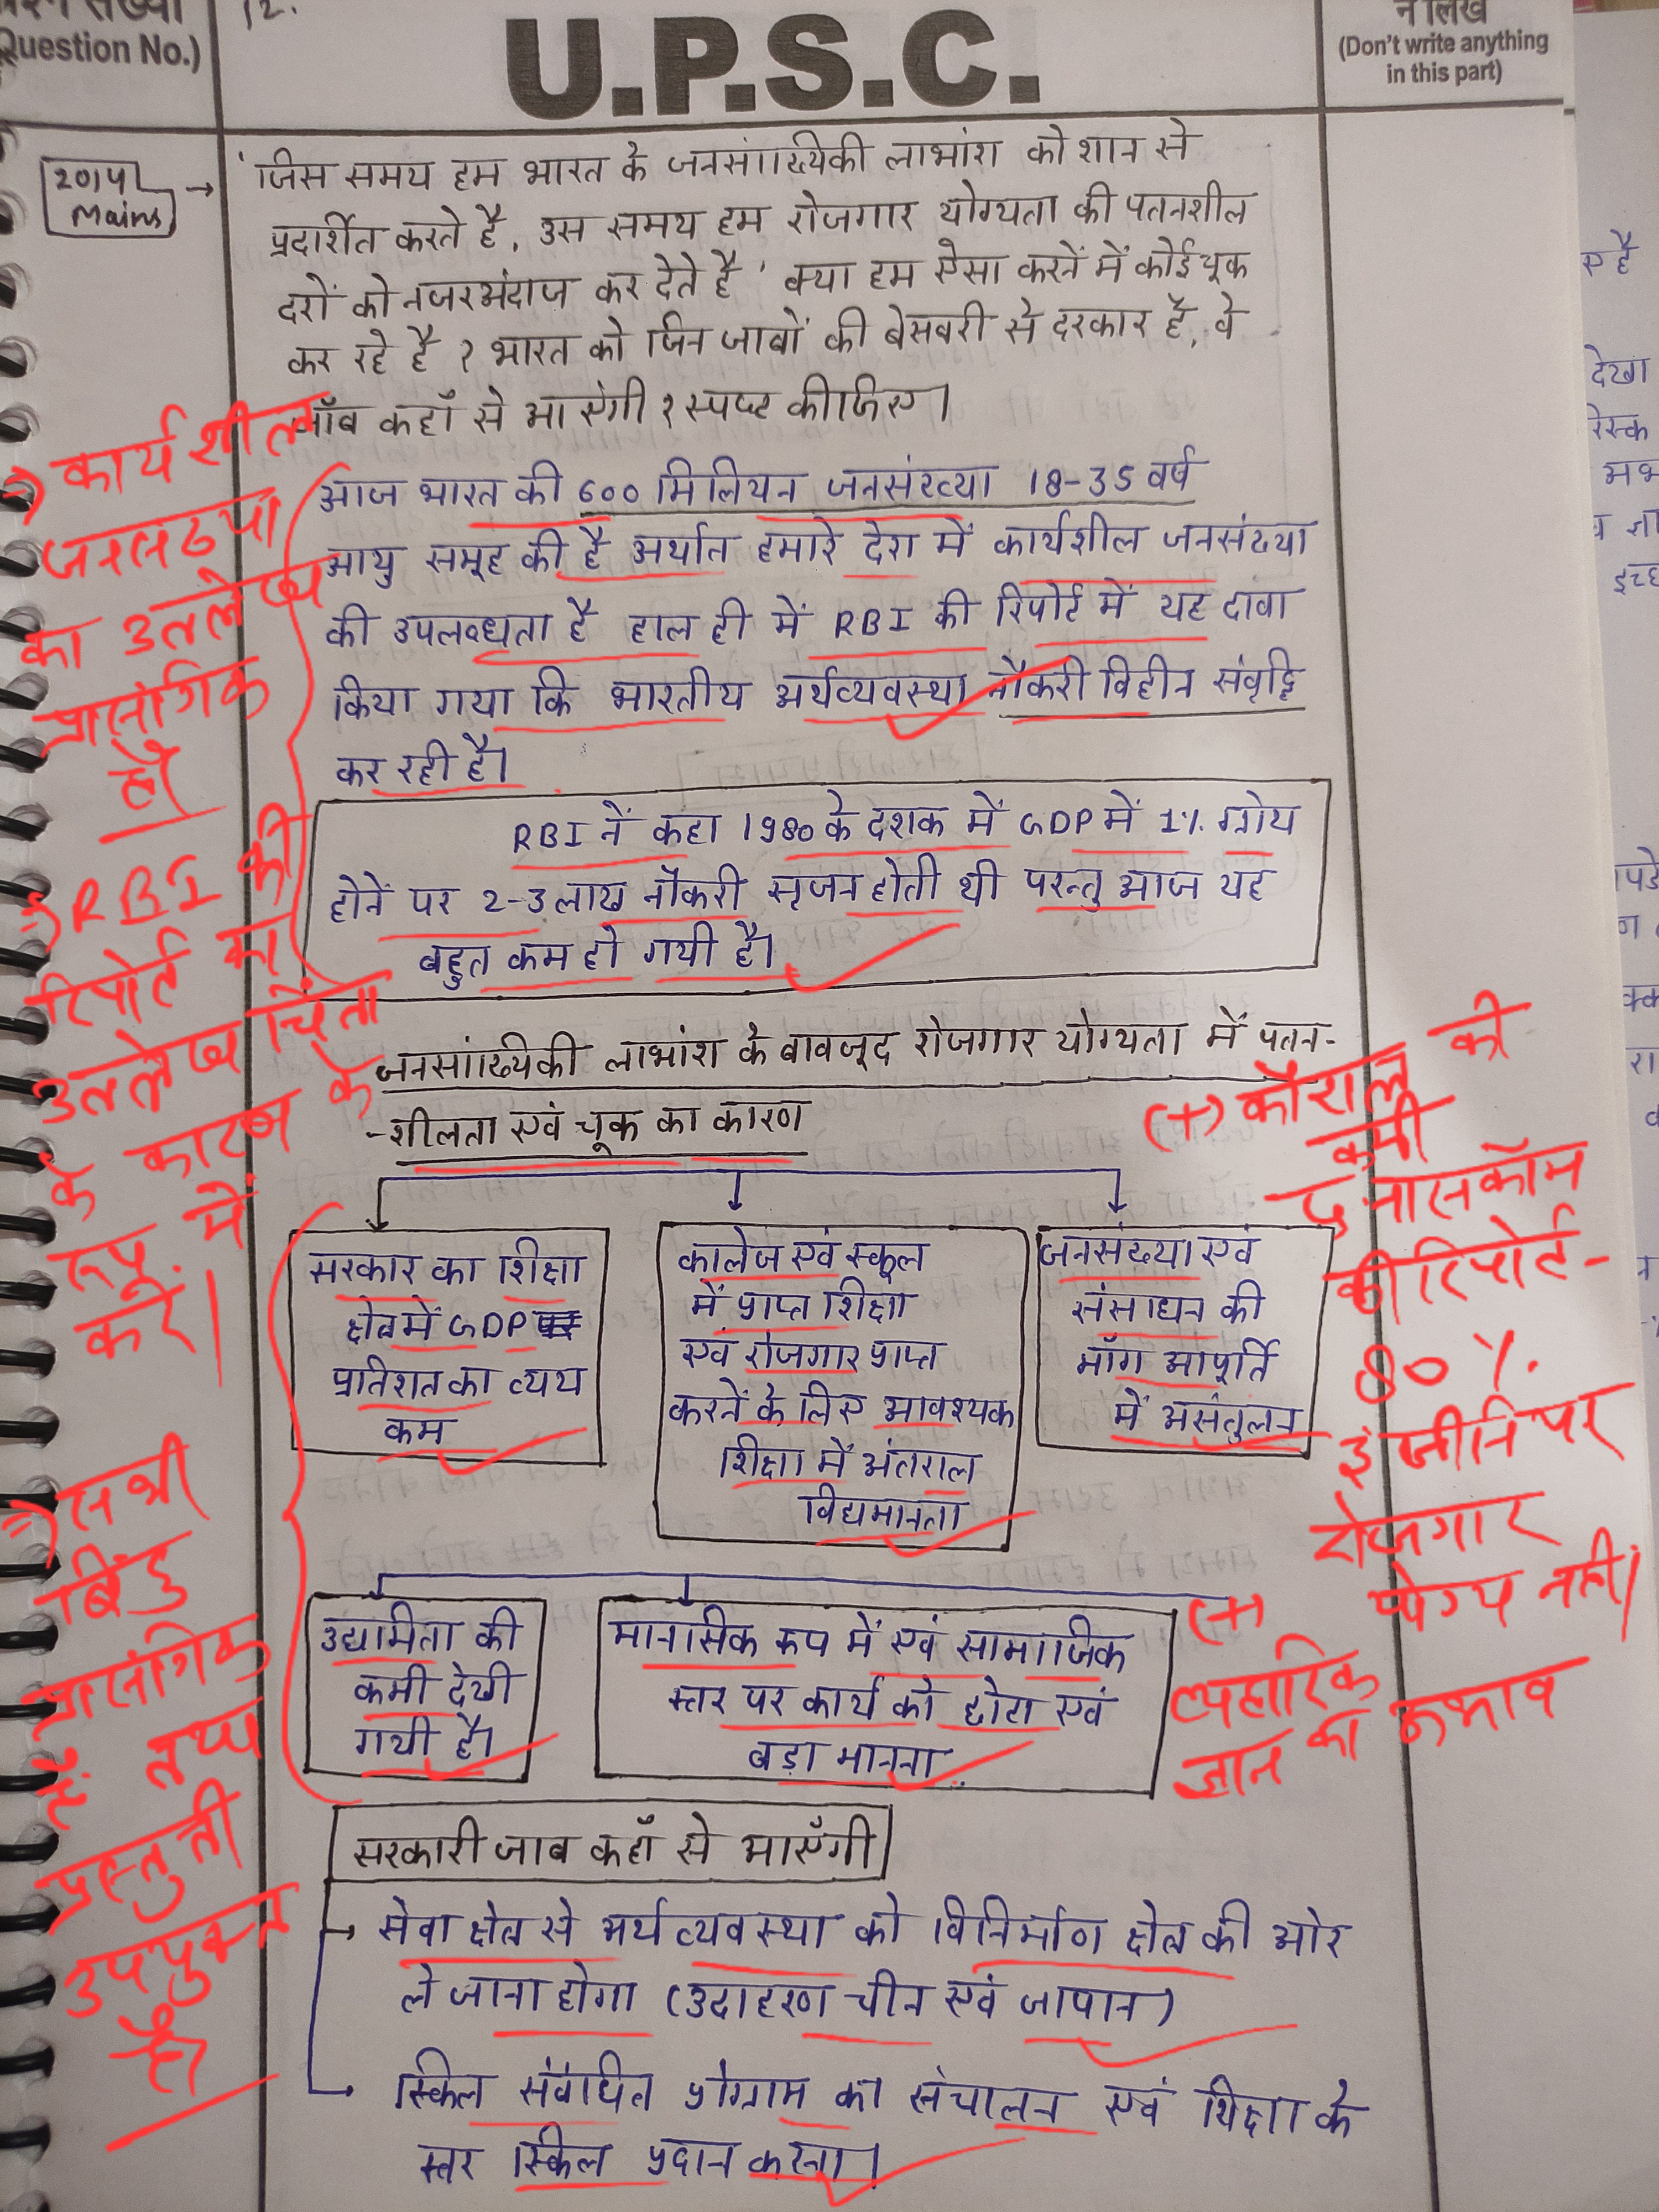 (Question No.)
12.
U.P.S.C.
न लिखें
(Don't write anything
in this part)
2014
Mains
'जिस समय हम भारत के जनसांख्यिकी लाभांश को शान से
प्रदर्शित करते है, उस समय हम रोजगार योग्यता की पतनशील
दरों को नजरअंदाज कर देते है' क्या हम ऐसा करनें में कोई चूक
कर रहे है ? भारत को जिन जाबों की बेसबरी से दरकार है, वे
जॉब कहाँ से आएंगी ? स्पष्ट कीजिए।
आज भारत की 600 मिलियन जनसंख्या 18-35 वर्ष
आयु समूह की है अर्थात हमारे देश में कार्यशील जनसंख्या
की उपलब्धता है हाल ही में RBI की रिपोर्ट में यह दावा
किया गया कि भारतीय अर्थव्यवस्था नौकरी विहीन संवृद्धि
कर रही है।
RBI नें कहा 1980 के दशक में GDP में 1% ग्रोथ
होनें पर 2-3 लाख नौकरी सृजन होती थी परन्तु आज यह
बहुत कम हो गयी है।
→ कार्यशील
जनसंख्या
का उल्लेख
प्रासंगिक
है।
→ RBI की
रिपोर्ट का
उल्लेख चिंता
के कारण के
रूप में
करें।
जनसांख्यिकी लाभांश के बावजूद रोजगार योग्यता में पतन-
-शीलता एवं चूक का कारण
सरकार का शिक्षा
क्षेत्र में GDP
प्रतिशत का व्यय
कम
कालेज एवं स्कूल
में प्राप्त शिक्षा
एवं रोजगार प्राप्त
करनें के लिए आवश्यक
शिक्षा में अंतराल
विद्यमानता
जनसंख्या एवं
संसाधन की
माँग आपूर्ति
में असंतुलन
(+) कौशल की
कमी
नासकॉम
की रिपोर्ट-
80 %
इंजीनियर
रोजगार
योग्य नहीं।
उद्यमिता की
कमी देखी
गयी है।
मानसिक रूप में एवं सामाजिक
स्तर पर कार्य को छोटा एवं
बड़ा मानना
(+)
व्यहारिक
ज्ञान का अभाव
→ सभी
बिंदु
प्रासंगिक
हैं तथा
प्रस्तुती
उपयुक्त
है।
सरकारी जाब कहाँ से आएँगी
→ सेवा क्षेत्र से अर्थव्यवस्था को विनिर्माण क्षेत्र की ओर
ले जाना होगा (उदाहरण चीन एवं जापान)
→ स्किल संबंधित प्रोग्राम का संचालन एवं शिक्षा के
स्तर स्किल प्रदान करना।
ए है
देखा
रिस्क